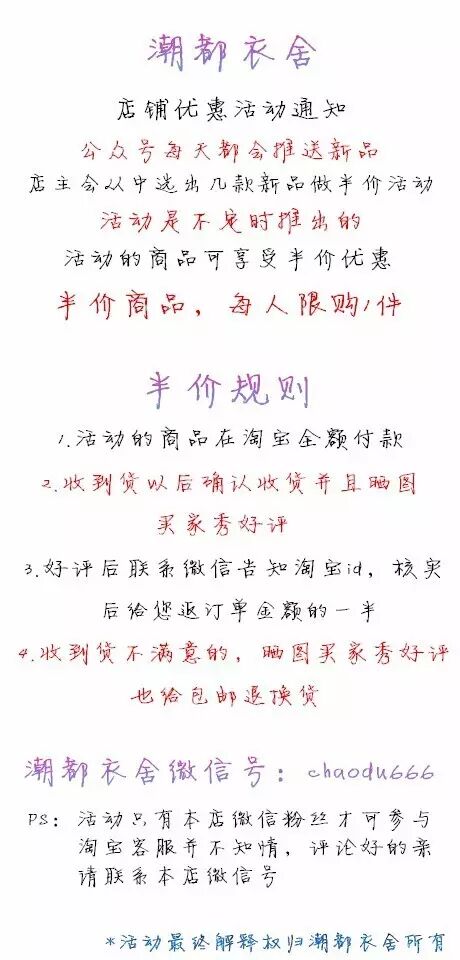 潮都衣舍
店铺优惠活动通知
公众号每天都会推送新品
店主会从中选出几款新品做半价活动
活动是不定时推出的
活动的商品可享受半价优惠
半价商品，每人限购1件
半价规则
1.活动的商品在淘宝全额付款
2.收到货以后确认收货并且晒图
买家秀好评
3.好评后联系微信告知淘宝id，核实
后给您返订单金额的一半
4.收到货不满意的，晒图买家秀好评
也给包邮退换货
潮都衣舍微信号：chaodu666
PS：活动只有本店微信粉丝才可参与
淘宝客服并不知情，评论好的亲
请联系本店微信号
*活动最终解释权归潮都衣舍所有